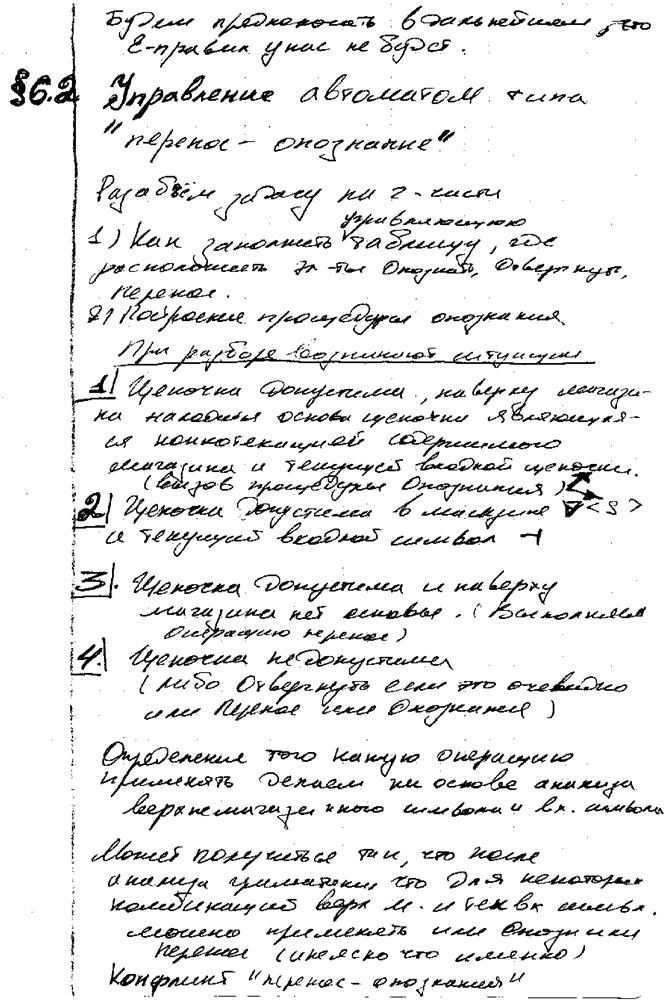 Будем предполагать в дальнейшем, что
Е-правил у нас не будет.
§6.2 Управление автоматом типа
"перенос - опознание"
Разобьём задачу на 2-части
управляющую
1) Как заполнить таблицу, где
расположить эл-ты Опознать, Отвергнуть,
Перенос.
2) Построение процедуры опознания
При разборе возникают ситуации
1| Цепочка допустима, наверху магази-
на находится основа цепочки являющую-
ся конкотенацией содержимого
магазина и текущей входной цепочки.
(вызов процедуры Опознания)
2| Цепочка допустима в магазине ∇<S>
и текущий входной символ ⊣
3|. Цепочка допустима и наверху
магазина нет основы. (Выполняем
операцию перенос)
4.| Цепочка недопустима
(либо Отвергнуть если это очевидно
или Перенос или Опознания)
Определение того какую операцию
применять делаем на основе анализа
верхнемагазинного символа и вх. символа
Может получиться так, что после
анализа грамматики что для некоторых
комбинаций верх м. и тек вх символ.
можно применять или Опозн или
перенос (инеясно что именно)
Конфликт "перенос - опознания"